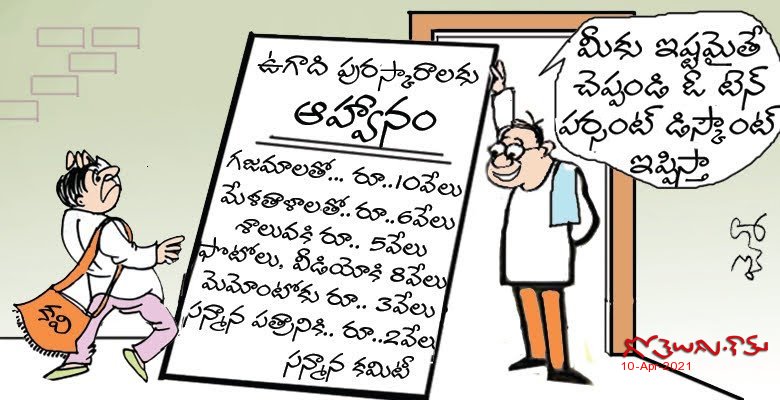 ఉగాది పురస్కారాలకు
ఆహ్వానం
గజమాలతో... రూ..10వేలు
మేళతాళాలతో..రూ..6వేలు
శాలువకి రూ.. 5వేలు
ఫొటోలు, వీడియోకి 8వేలు
మెమోంటోకు రూ.. 3వేలు
సన్మాన పత్రానికి.. రూ..2వేలు
సన్మాన కమిటీ
మీకు ఇష్టమైతే
చెప్పండి ఓ టెన్
పర్సంట్ డిస్కౌంట్
ఇప్పిస్తా
కవి
గోతెలుగు.కామ్
10-Apr-2021